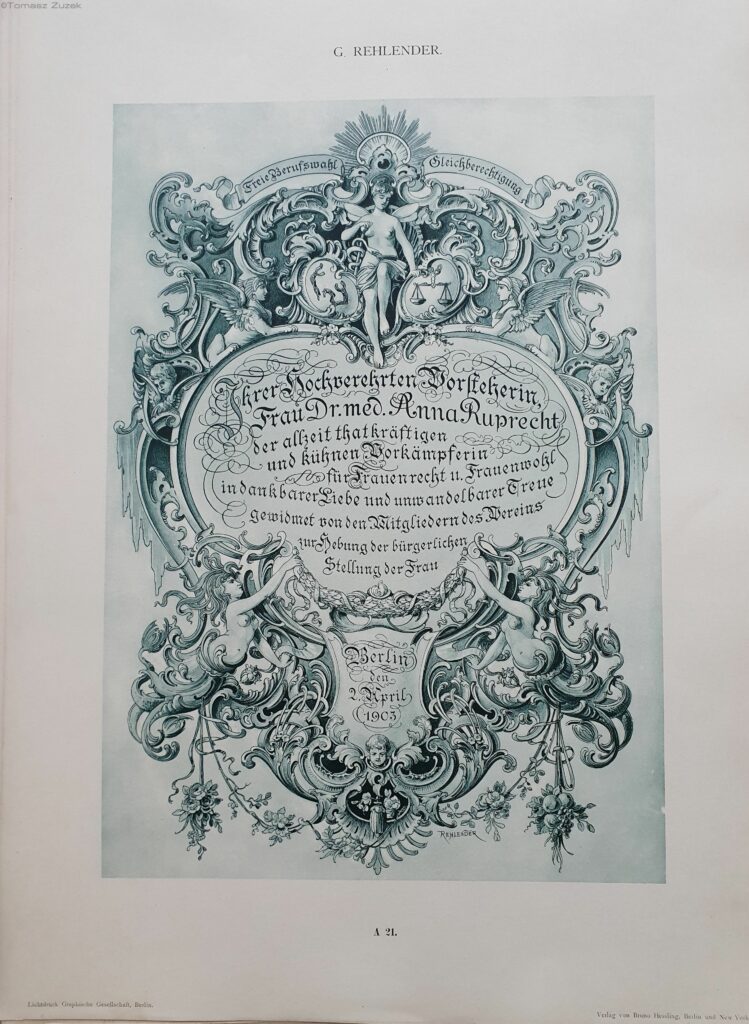 ©Tomasz Zuzek
G. REHLENDER.
Freie Berufswahl
Gleichberechtigung
Ihrer Hochverehrten Vorsteherin,
Frau Dr. med. Anna Ruprecht
der allzeit thatkräftigen
und kühnen Vorkämpferin
für Frauenrecht u. Frauenwohl
in dankbarer Liebe und unwandelbarer Treue
gewidmet von den Mitgliedern des Vereins
zur Hebung der bürgerlichen
Stellung der Frau
Berlin
den
2. April
1903
REHLENDER
A 21.
Lichtdruck Graphische Gesellschaft, Berlin.
Verlag von Bruno Hessling, Berlin und New York